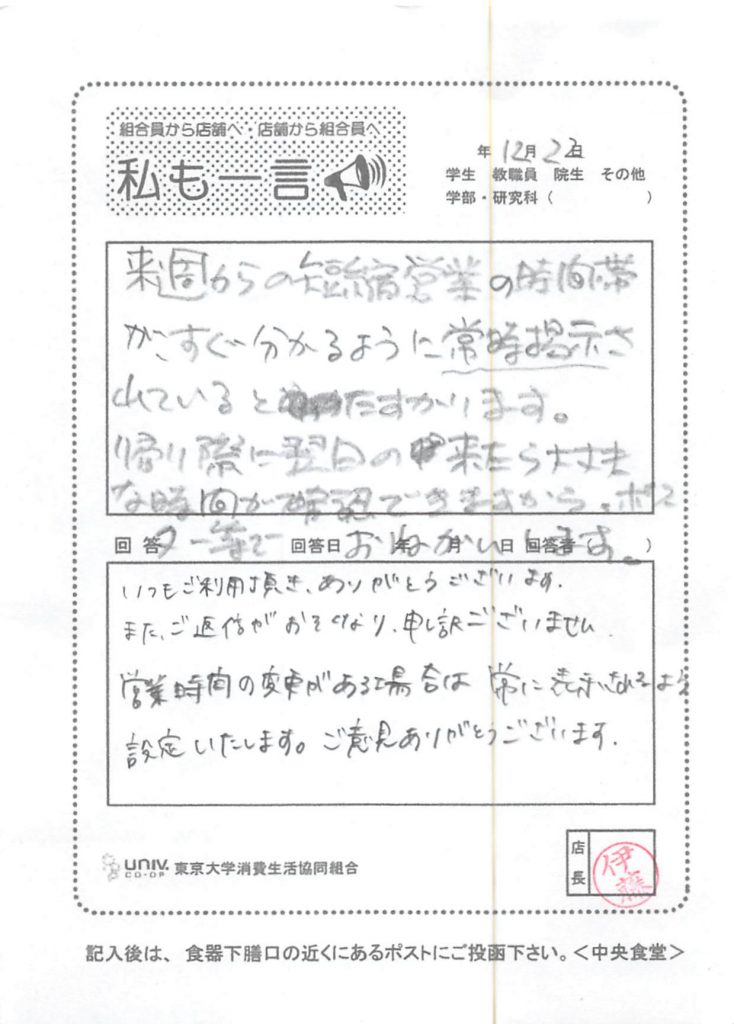 組合員から店舗へ・店舗から組合員へ
私も一言
年 12月 2日
学生 教職員 院生 その他
学部・研究科（ ）
来週からの短縮営業の時間帯
がすぐ分かるように常時掲示さ
れていると たすかります。
帰り際に翌日の 来たら大丈夫
な時間が確認できますから。ポス
ター等で おねがいします。
回答 回答日 年 月 日 回答者（ ）
いつもご利用頂き、ありがとうございます。
また、ご返信がおそくなり、申し訳ございません。
営業時間の変更がある場合は 常に表示されるよう
設定いたします。ご意見ありがとうございます。
UNIV. CO-OP 東京大学消費生活協同組合
店長 伊藤
記入後は、食器下膳口の近くにあるポストにご投函下さい。＜中央食堂＞